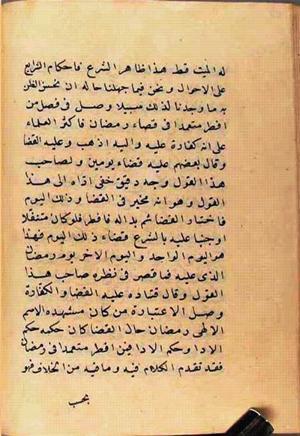 له المبت قط هذا ظاهر الشرع فاحكام الشرايع
على الاحوال ونحن فيما جهلنا حاله ان نحسن الظن
به ما وجدنا لذلك سبيلا وصل في فصل من
افطر متعمدا في قضاء رمضان فاكثر العلماء
على انه لا كفارة عليه واليه اذهب وعليه القضا
وقال بعضهم عليه قضاء يومين ولصاحب
هذا القول وجه دقيق خفي اداه الى هذا
القول وهو انه مخير في القضاء وذلك اليوم
فاختار القضا ثم بدا له فافطر فلو كان متنفلا
اوجبنا عليه بالشرع قضاء ذلك اليوم فهذا
هو اليوم الواحد واليوم الاخر يوم رمضان
الذي عليه فما قصر في نظره صاحب هذا
القول وقال قتاده عليه القضا والكفارة
وصل الاعتبار من كان مشهده الاسم
الالهي رمضان حال القضا كان حكمه حكم
الادا وحكم الادا فيمن افطر متعمدا في رمضان
فقد تقدم الكلام فيه وما فيه من الخلاف فهو
بحسب